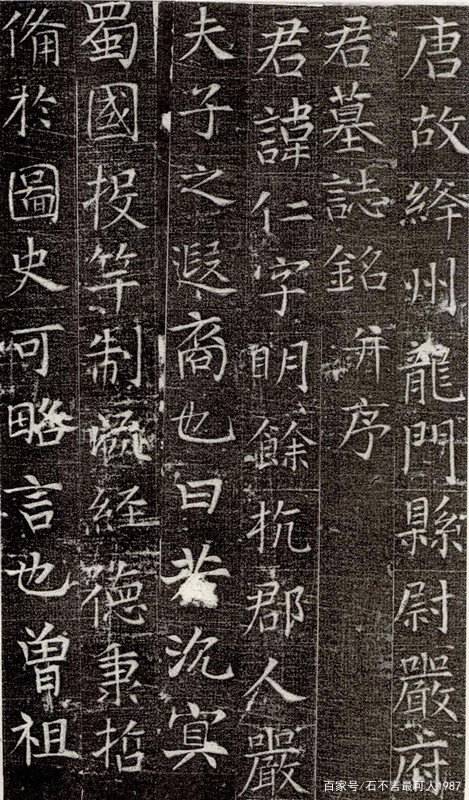 唐故絳州龍門縣尉嚴府
君墓誌銘并序
君諱仁字明餘杭郡人嚴
夫子之遐裔也曰若沉冥
蜀國投竿制經德秉哲
俻於圖史可略言也曾祖
百家号/石不言最可人1987